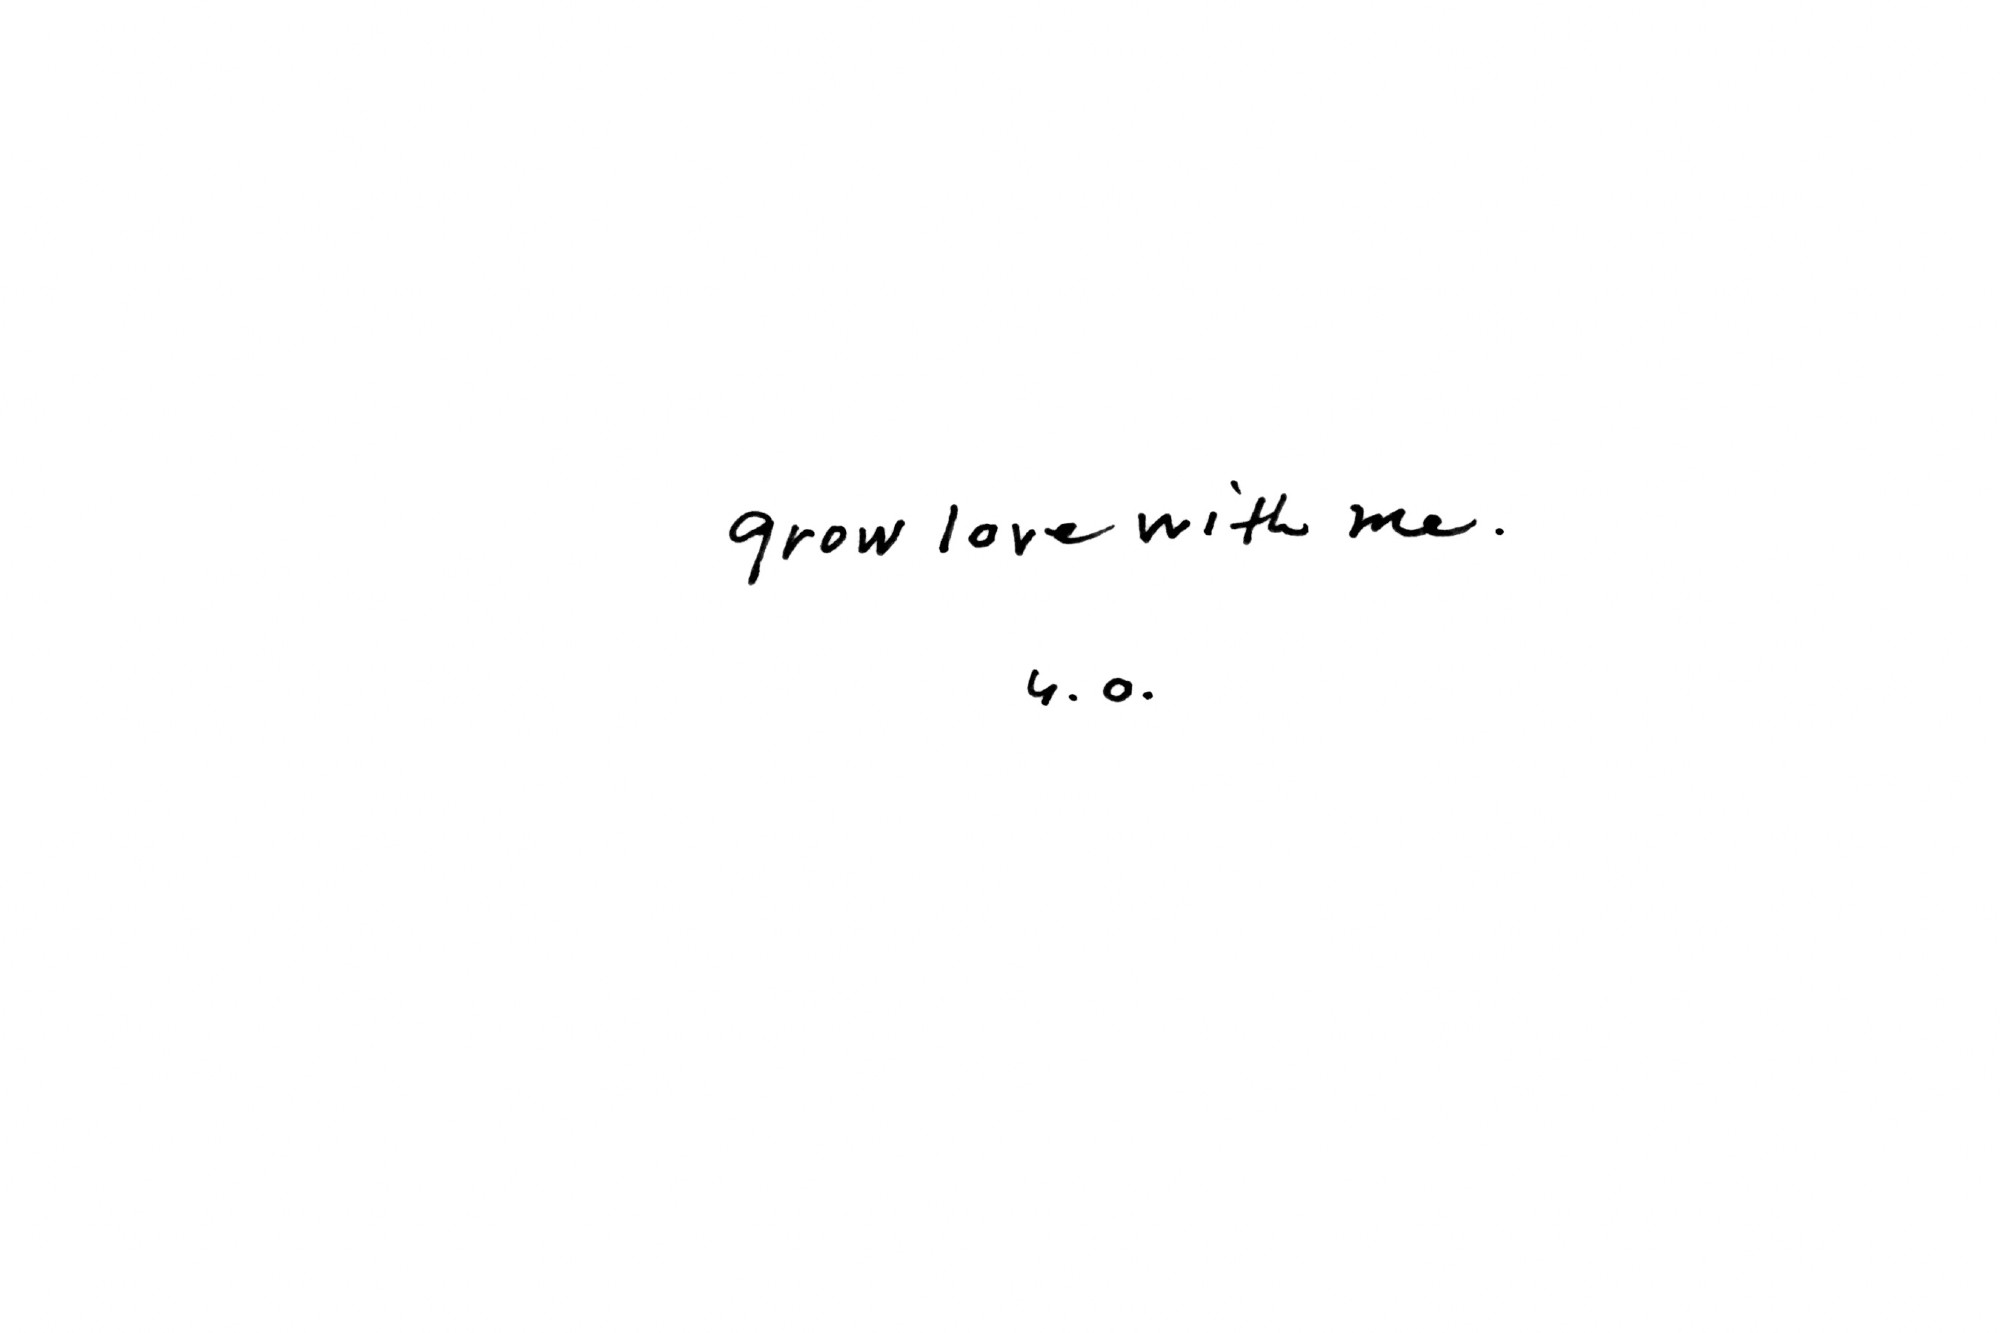 grow love with me.
y.o.